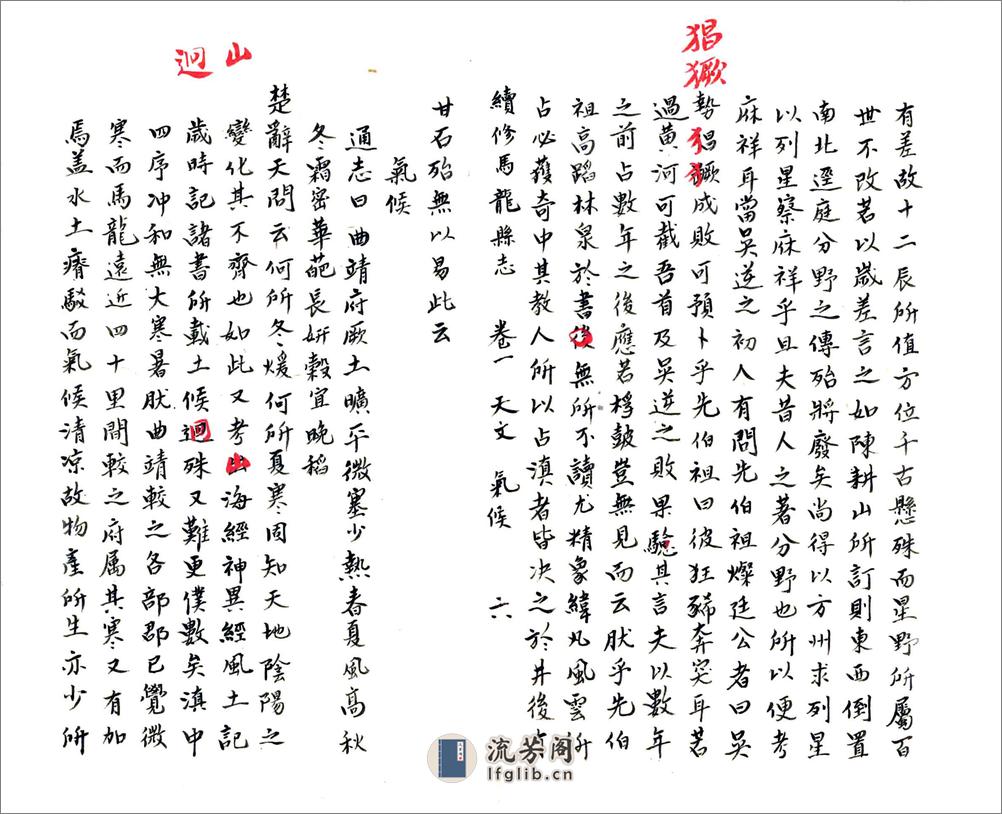 猖獗
有差故十二辰所值方位千古懸殊而星野所屬百
世不改若以歲差言之如陳耕山所訂則東西倒置
南北逕庭分野之傳殆將廢矣尚得以方州求列星
以列星察庥祥乎且夫昔人之著分野也所以便考
庥祥耳當吳逆之初人有問先伯祖燦廷公者曰吳
勢猖獗成敗可預卜乎先伯祖曰彼狂豨奔突耳若
過黃河可截吾首及吳逆之敗果驗其言夫以數年
之前占數年之後應若桴鼓豈無見而云肰乎先伯
祖高蹈林泉於書後無所不讀尤精象緯凡風雲所
占必蒦奇中其教人所以占滇者皆决之於井後占
續修馬龍縣志 卷一 天文 氣候 六
甘石殆無以易此云
氣候
通志曰曲靖府厥土曠平微塞少熱春夏風高秋
冬霜密華葩長妍穀宜晚稻
楚辭天問云何所冬煖何所夏寒固知天地陰陽之
變化其不齊也如此又考山海經神異經風土記
歲時記諸書所載土候迥殊又難更僕數矣滇中
四序冲和無大寒暑肰曲靖較之各部郡已覺微
寒而馬龍遠近四十里間較之府屬其寒又有加
焉盖水土瘠駁而氣候清凉故物產所生亦少所
山
迥
流芳阁
lfglib.cn